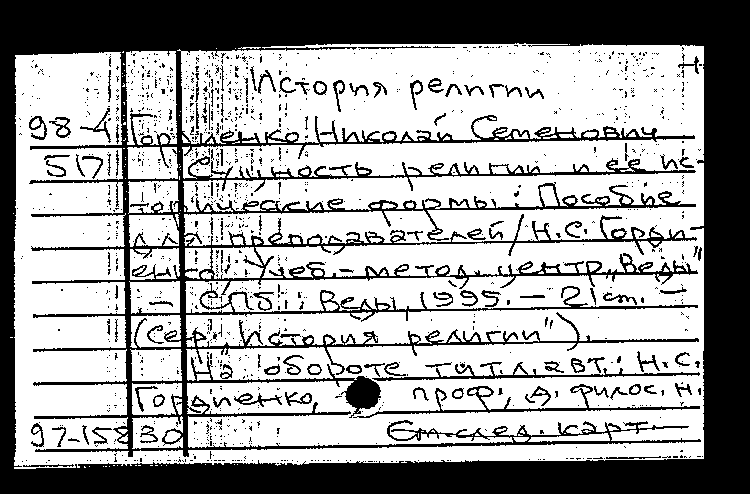 История религии
98-4 Гордиенко, Николай Семенович
517 Сущность религии и ее ис-
торические формы : Пособие
для преподавателей / Н.С. Горди-
енко; Учеб.-метод. центр „Веды"
. - СПб. : Веды, 1995. - 21 cm. -
(Сер. „История религии").
На обороте тит. л. авт.: Н.С.
Гордиенко, проф., д. филос. н.
97-15830 См. след. карт.